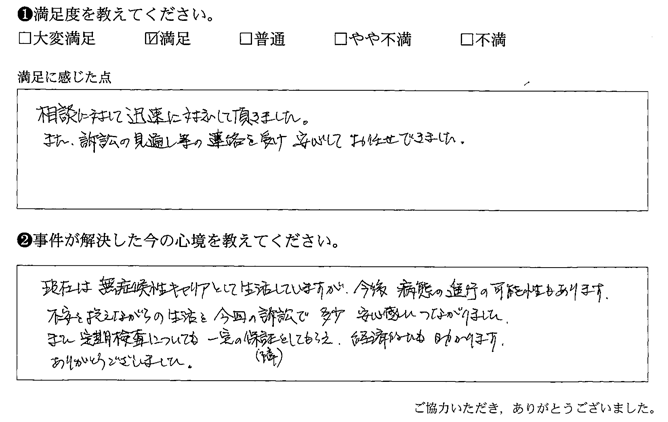 ❶満足度を教えてください。
□大変満足 ☑満足 □普通 □やや不満 □不満
満足に感じた点
相談に対して迅速に対応して頂きました。
また、訴訟の見通し等の連絡を受け安心してお任せできました。
❷事件が解決した今の心境を教えてください。
現在は無症候性キャリアとして生活していますが、今後病態の進行の可能性もあります。
不安を抱えながらの生活を今回の訴訟で多少安心感につながりました。
また定期検査についても一定の保証をしてもらえ、経済的にも助かります。
(障)
ありがとうございました。
ご協力いただき，ありがとうございました。